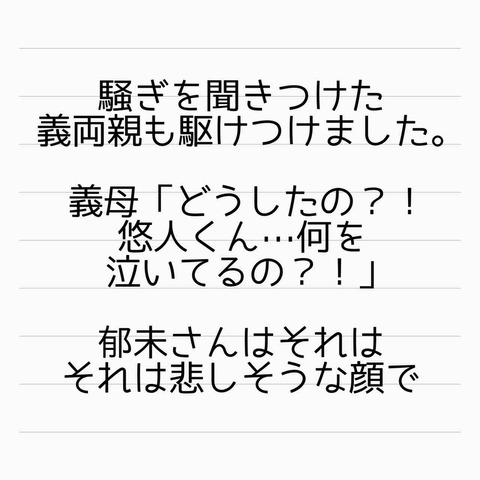 騒ぎを聞きつけた
義両親も駆けつけました。
義母「どうしたの？！
悠人くん…何を
泣いてるの？！」
郁未さんはそれは
それは悲しそうな顔で